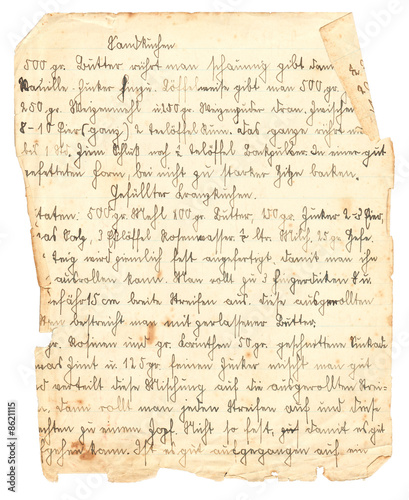 Sandkuchen
500 gr. Butter rührt man schaumig gibt dann
Vanille-Zucker hinzu. Löffelweise gibt man 500 gr.
250 gr. Weizenmehl u 250 gr. Weizenpuder dran. Zwischen
8-10 Eier (ganz) 2 Teelöffel Rum. Das ganze rührt man
bis 1 Std. Zum Schluß noch 2 Teelöffel Backpulver. In einer gut
gefetteten Form, bei nicht zu starker Hitze backen.
Gefüllter Kranzkuchen.
taten: 500 gr. Mehl 100 gr. Butter, 150 gr. Zucker 2-3 Eier,
was Salz, 3 Eßlöffel Rosenwasser ltr. Milch, 25 gr. Hefe.
Teig wird ziemlich fest angefertigt, damit man ihn
ausrollen kann. Man rollt zu 3 fingerdicken
gefähr 15 cm breite Streifen aus. Diese ausgerollten
bestreicht man mit zerlassener Butter.
gr. Rosinen und gr. Corinthen 50 gr. geschnittene Sukade
was Zimt u 125 gr. feinen Zucker mischt man gut
und verteilt diese Mischung auf die ausgerollten Strei-
dann rollt man jeden Streifen auf und diese
flechten zu einem Zopf. Nicht so fest, damit es gut
gehen kann. Ist es gut aufgegangen auf ein
Adobe Stock
#8621115